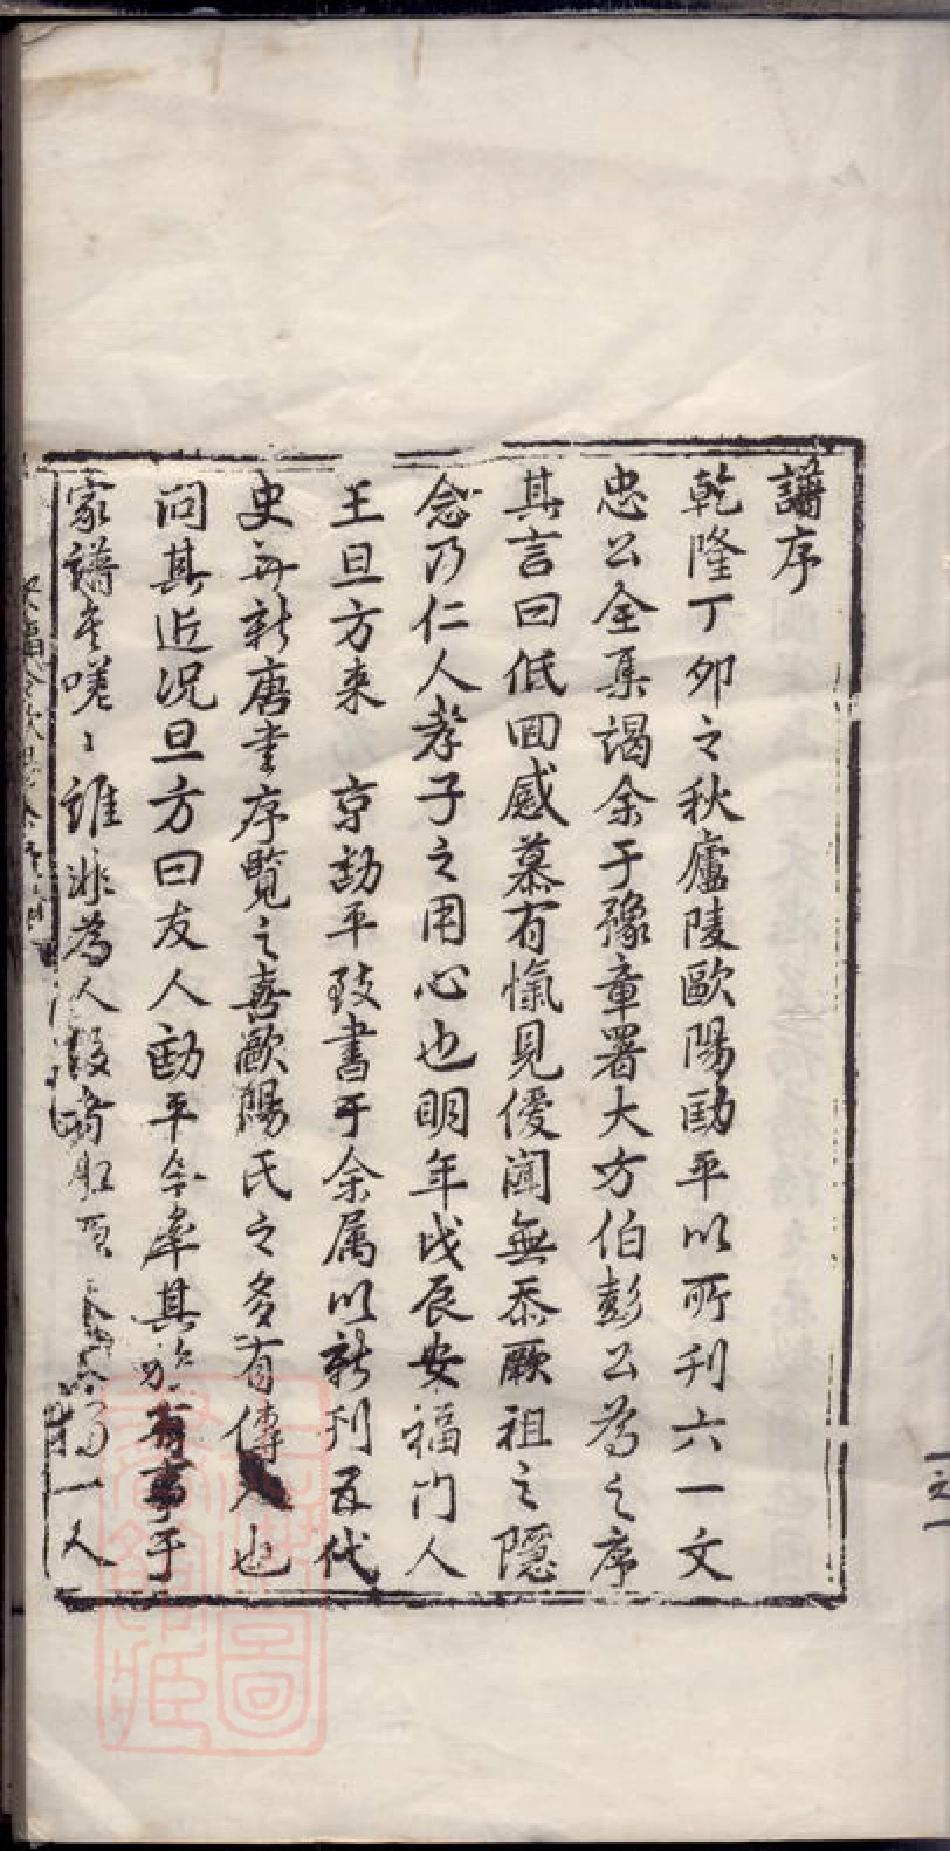 譜序
乾隆丁卯之秋廬陵歐陽勔平以所刊六一文
忠公全集謁余于豫章署大方伯彭公為之序
其言曰低回感慕有愾見僾聞無忝厥祖之隱
念乃仁人孝子之用心也明年戊辰安福門人
王旦方来 京勔平致書于余属以新刊五代
史与新唐書序覧之喜歐陽氏之多有傳人也
问其近况旦方曰友人勔平今率其族有事于
家譜矣嘆〻誰非為人後者 一人